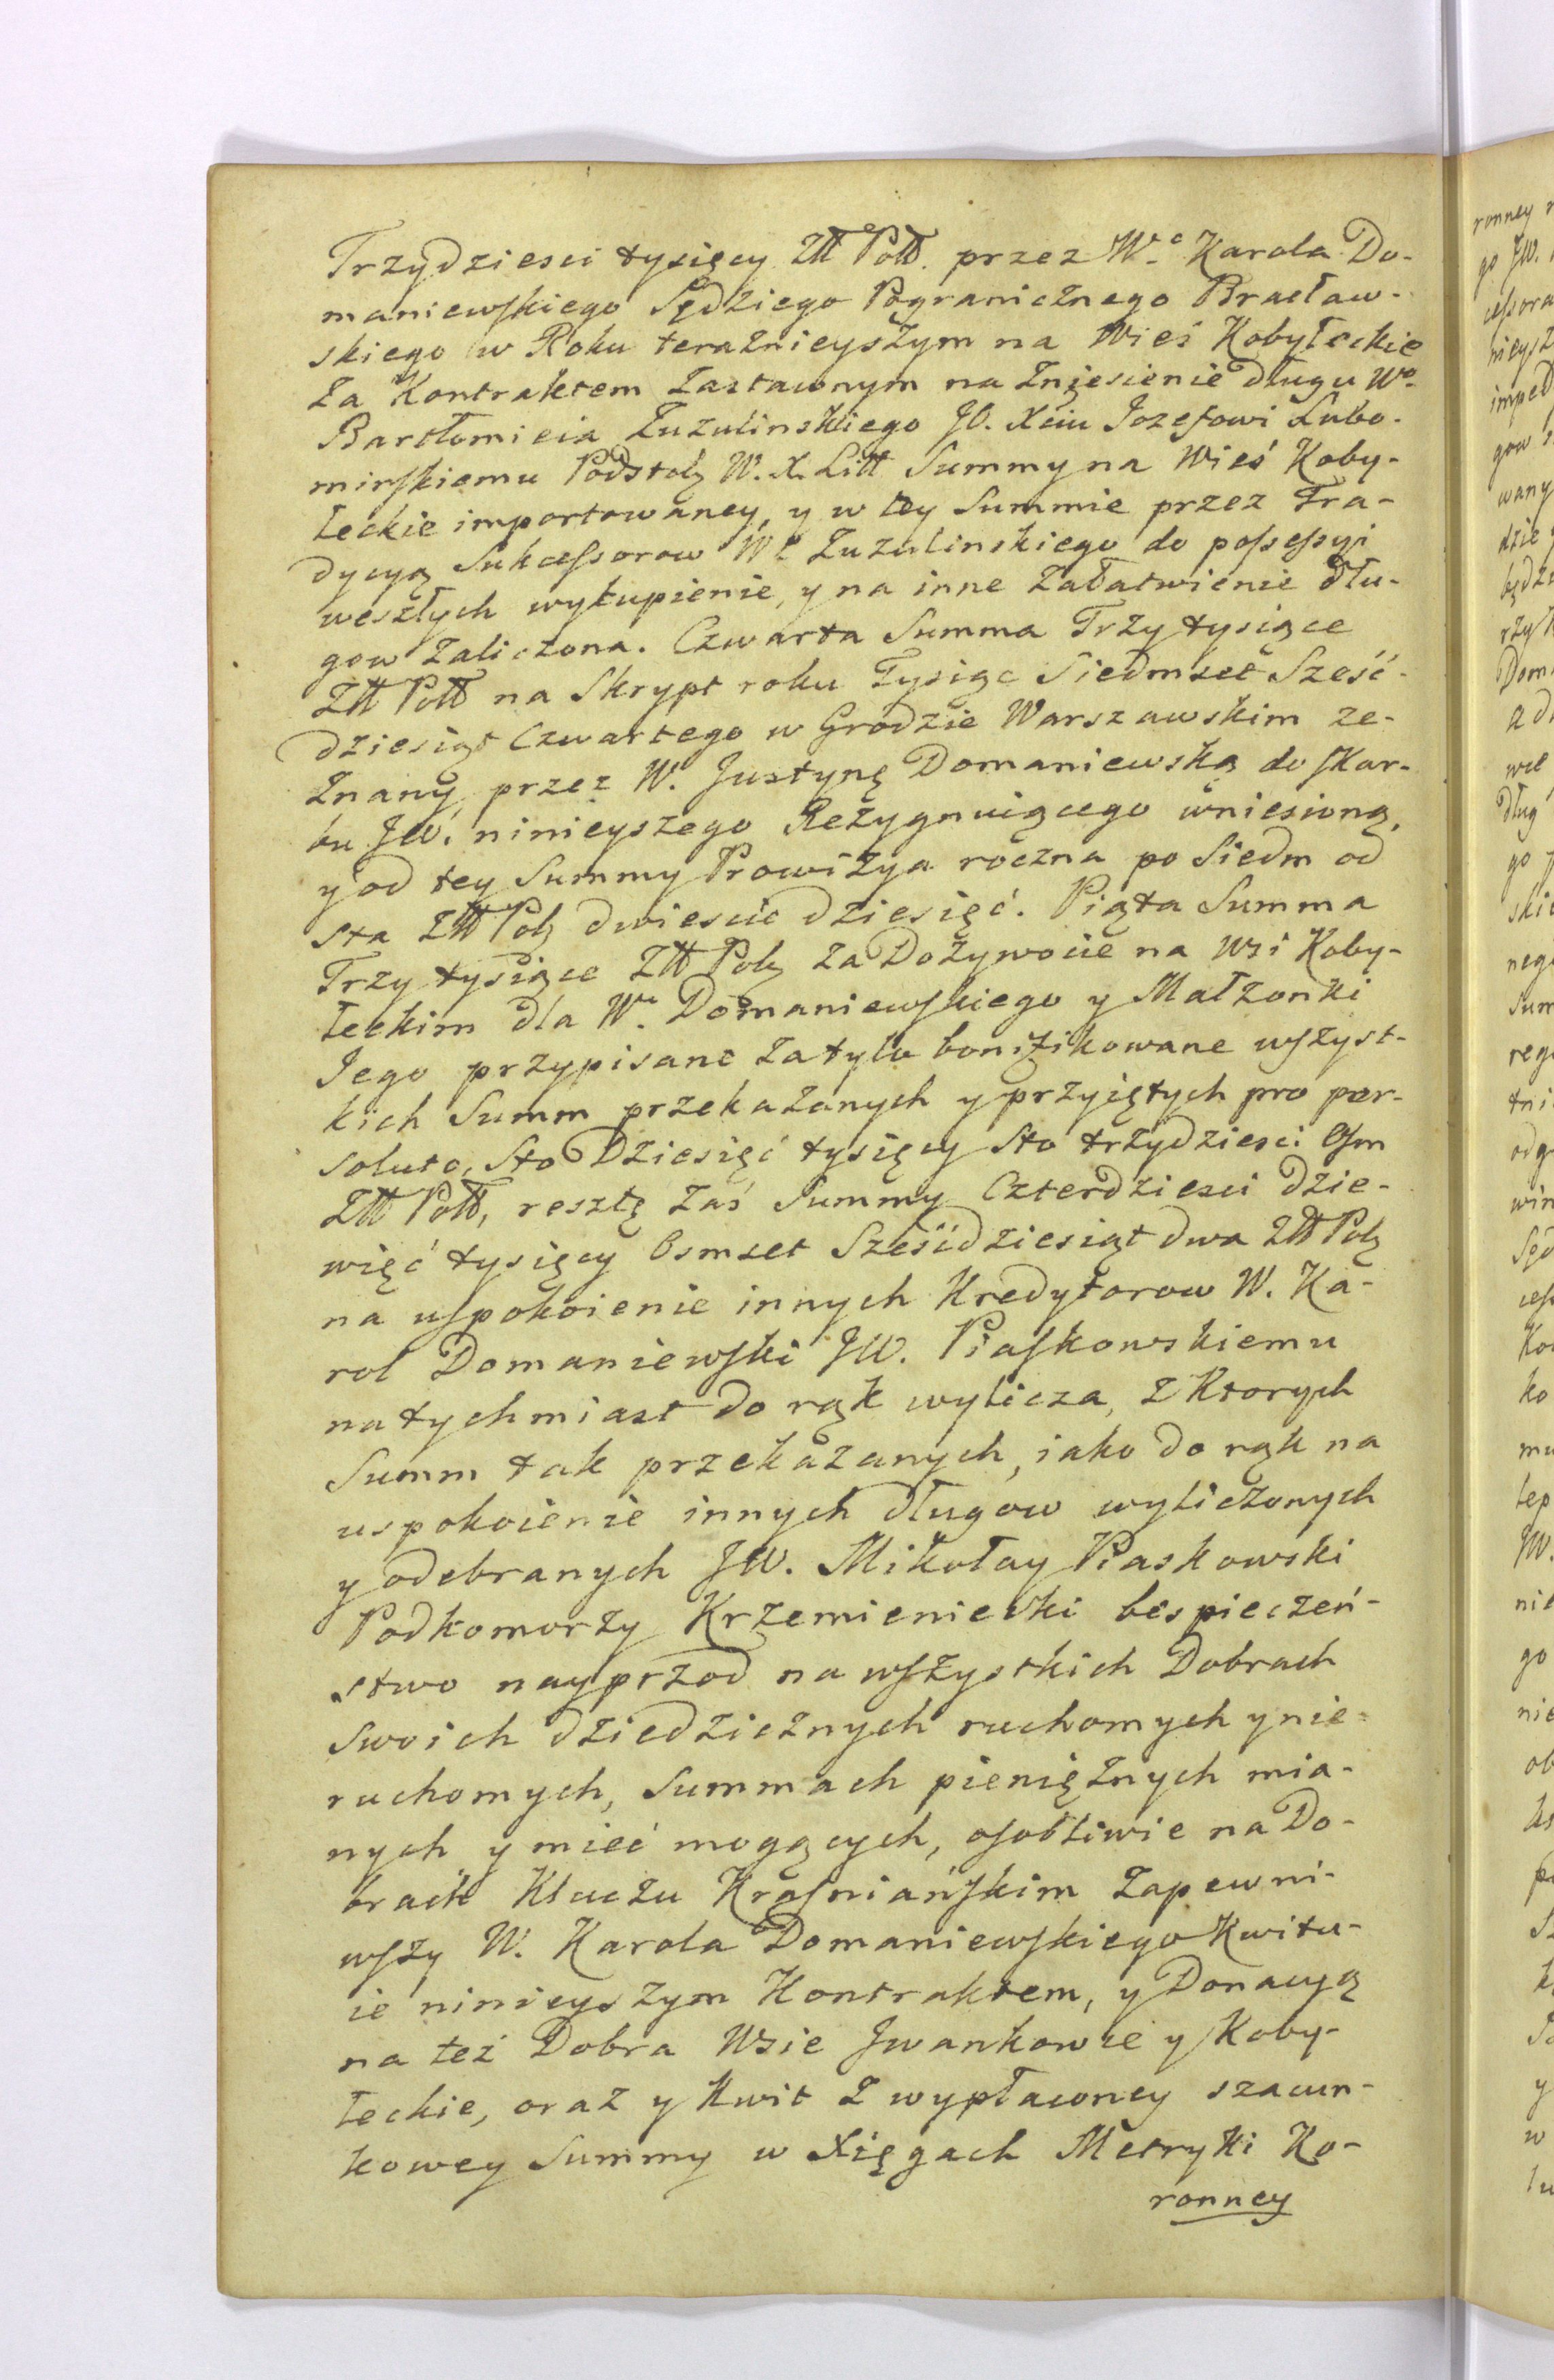 Trzydziesci tysięcy Ztt Poll. przez W.º Karola Do-
maniewskiego Sędziego Pogranicznego Bracław-
skiego w Roku teraznieyszym na Wieś Kobyłeckie
Za Kontraktem Zastawnym na Zniesienie długu Wº
Bartłomieia Zuzulinskiego JO. Xciu Jozefowi Lubo-
mirskiemu Podstolę W. X. Litt Summy na Wieś Koby-
łeckie importowaney, y w tey Summie przez Tra-
dycyą Sukcessorow Wº Zuzulinskiego do possessyi
weszłych wykupienie, y na inne Załatwienie dłu-
gow Zaliczona. Czwarta Summa Trzy tysiące
Ztt Poll na Skrypt roku Tysiąc Siedmset Sześć-
dziesiąt Czwartego w Grodzie Warszawskim ze-
Znany przez W. Justynę Domaniewską do skar-
bu JW. ninieyszego Rezygnuiącego wniesioną,
y od tey Summy Prowizya roczna po Siedm od
sta Ztt Polę dwiescie dziesięć. Piąta Summa
Trzy tysiące Ztt Polę Za Dożywocie na Wsi Koby-
łeckim dla Wº Domaniewskiego y Małzonki
Jego przypisane Zatylo bonifikowane wszyst-
kich Summ przekazanych y przyiętych pro per-
soluto, Sto Dziesięć tysięcy Sto trzydziesci Osm
Ztt Poll, resztę Zaś Summy Czterdziesci dzie-
więć tysięcy Osmset Sześćdziesiąt dwa Ztt Polę
na uspokoienie innych Kredytorow W. Ka-
rol Domaniewski JW. Piaskowskiemu
natychmiast do rąk wylicza, Z Ktorych
Summ tak przekazanych, iako do rąk na
uspokoienie innych długow wyliczonych
y odebranych JW. Mikołay Piaskowski
Podkomorzy Krzemieniecki bespieczeń-
stwo nayprzod na wszystkich Dobrach
Swoich dziedzicznych ruchomych y nie-
ruchomych, Summach pieniężnych mia-
nych y mieć mogących, osobliwie na Do-
brach Kluczu Krasniańskim Zapewni-
wszy W. Karola Domaniewskiego Kwitu-
ie ninieyszym Kontraktem, y Donacyą
na też Dobra Wsie Jwankowce y Koby-
łeckie, oraz y Kwit Z wypłaconey szacun-
kowey Summy w Xięgach Metryki Ko-
ronney